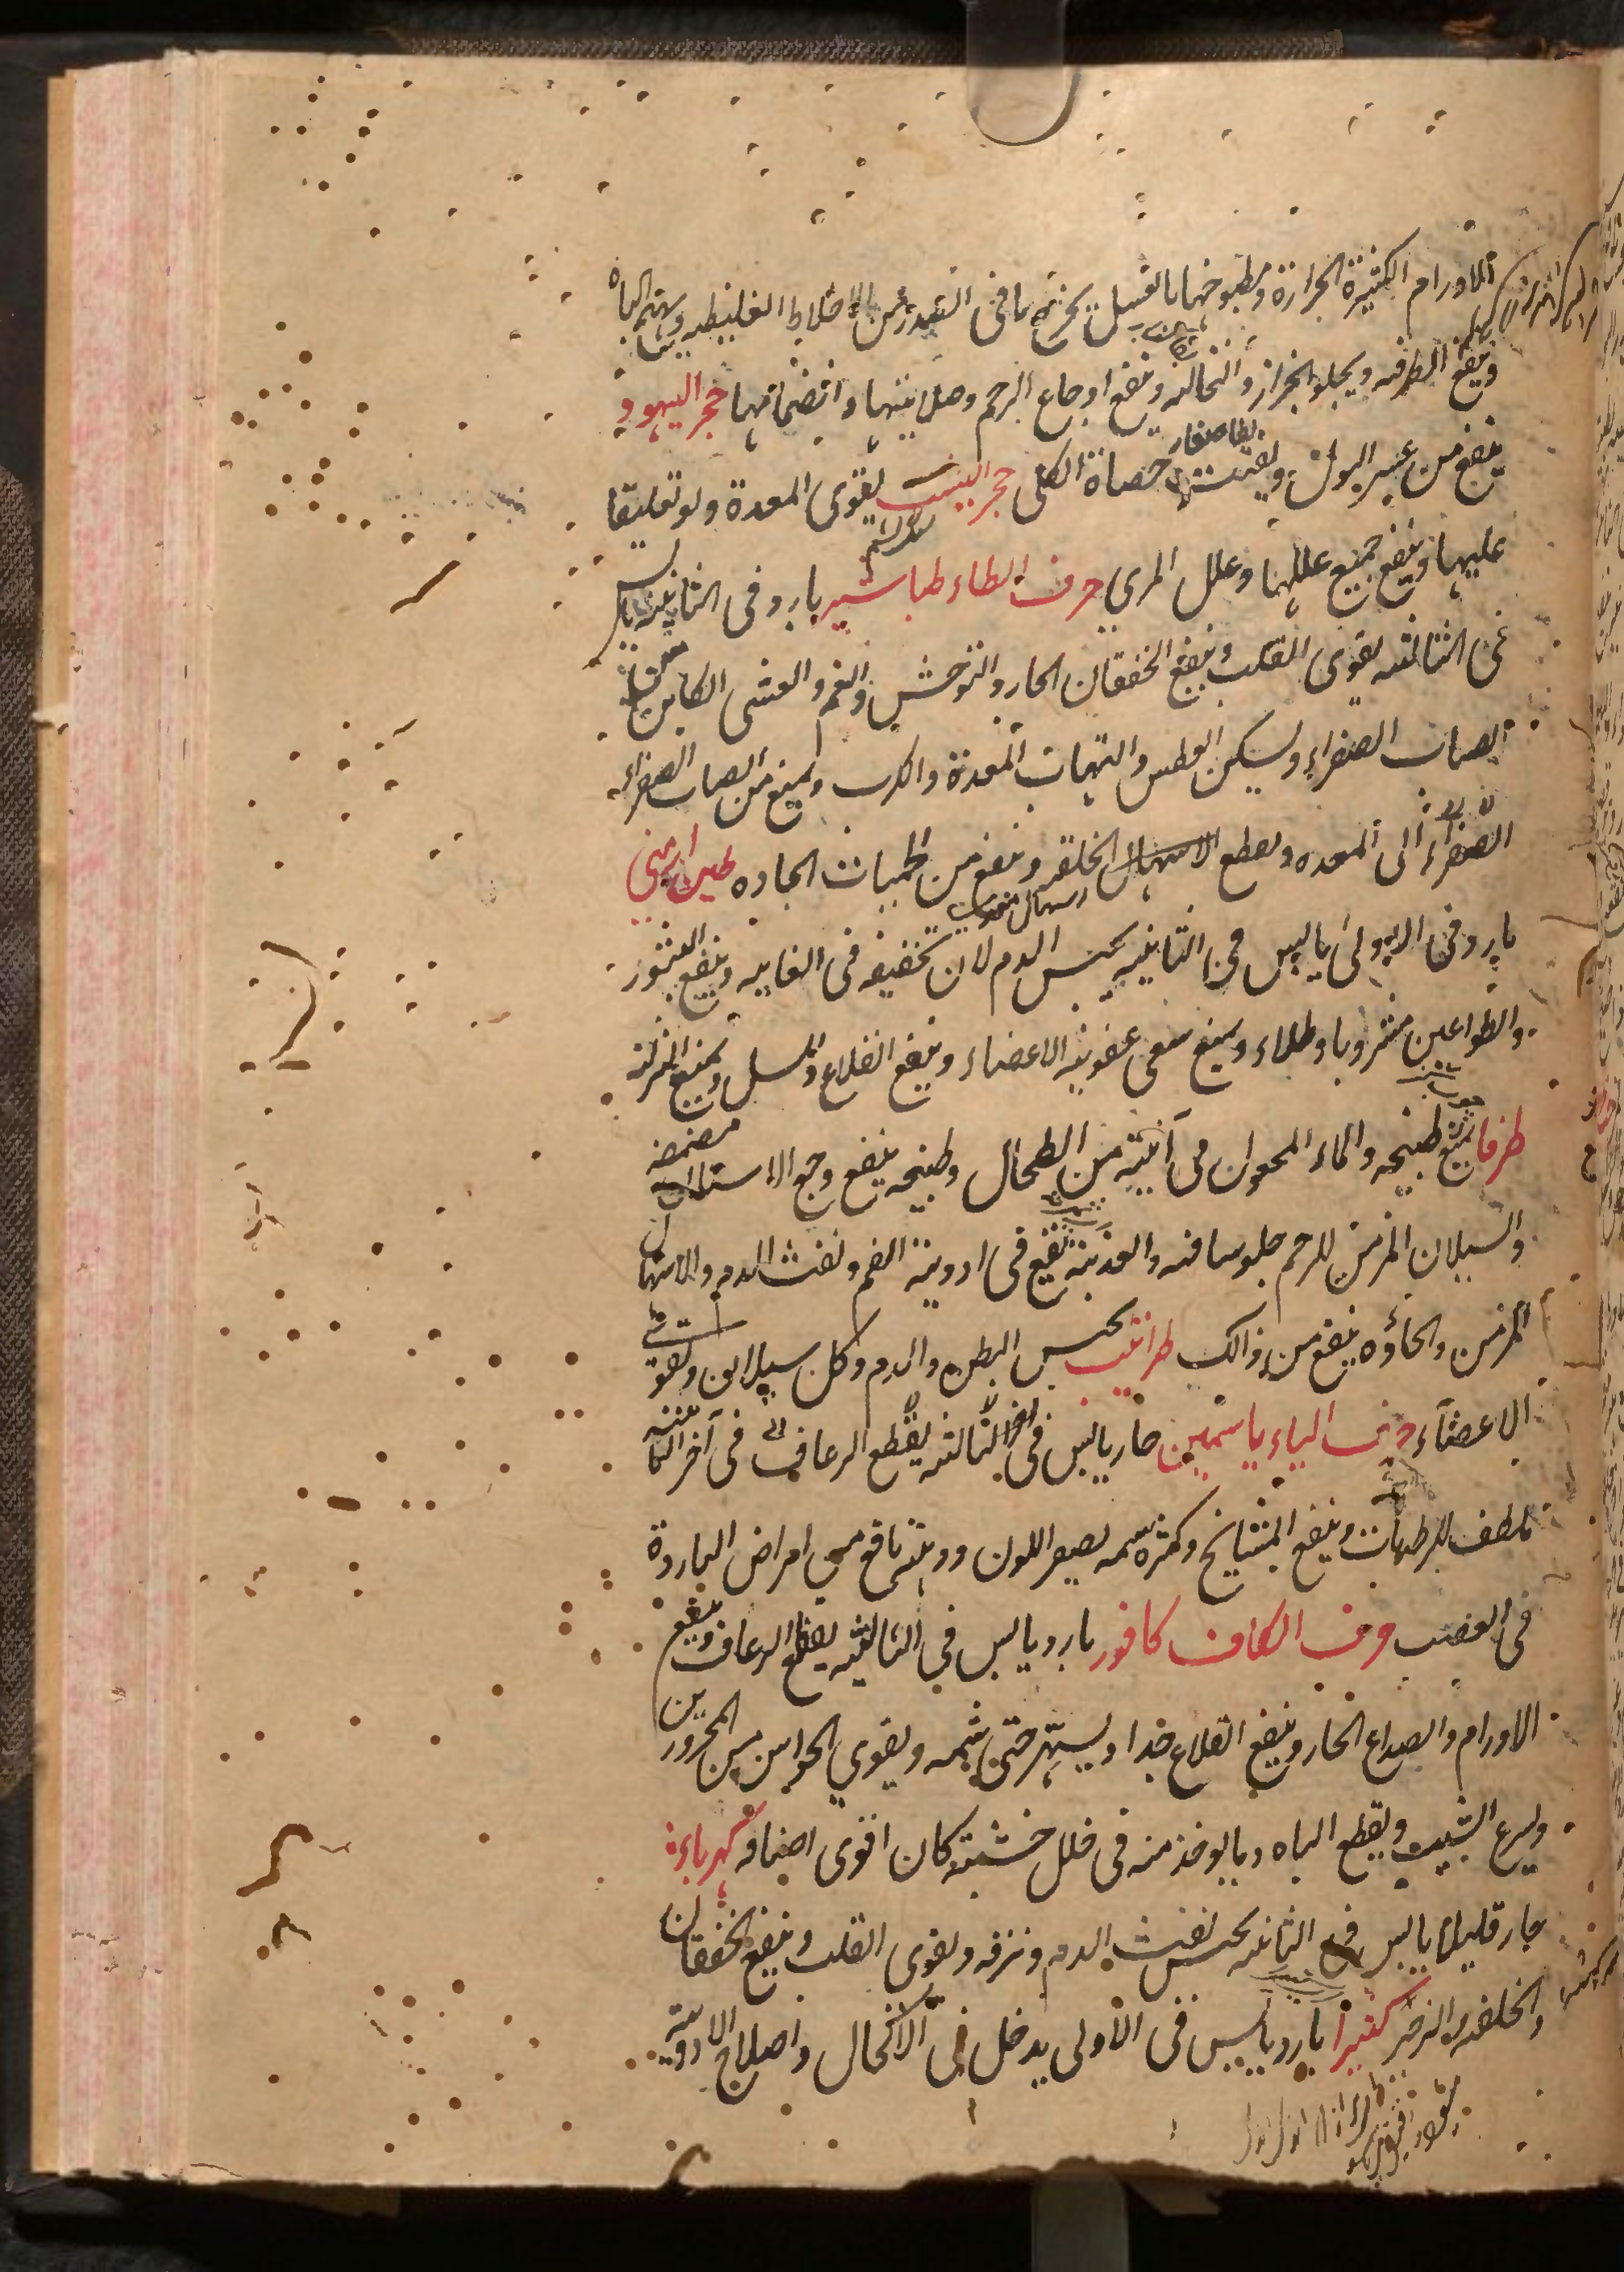 الاورام الكثيرة الحرارة ومطبوخها بالعسل يخرج ما فى الصدر من الاخلاط الغليظه ويهيج الباه
وينفع الطرفه ويجلو الحزاز والنخالة وينفع اوجاع الرحم وصلابتها وانضمامها حجر اليهود
ينفع من عسر البول ويفتت حصاة الكلى حجر اليشب يقوى المعدة ولو تعليقا
عليها وينفع جميع عللها وعلل المرى حرف الطاء طباشير بارد فى الثانيه يابس
فى الثالثه يقوى القلب وينفع الخفقان الحار والتوحش والغم والغشى الكائن من
انصباب الصفراء ويسكن العطش والتهاب المعدة والكرب ويمنع من انصباب الصفراء
الصفراء الى المعده ويقطع الاسهال الخلقه وينفع من الحميات الحاده طين ارمنى
بارد فى الاولى يابس فى الثانيه يحبس الدم لان تجفيفه فى الغايه وينفع البثور
والطواعين مشروبا وطلاء ويمنع سعى عفونة الاعضاء وينفع القلاع والسل ويمنع النزلة
طرفا ينفع طبيخه والماء المجعول فى آنيته من الطحال وطبيخه ينفع وجع الاسنان مضمضه
والسيلان المزمن للرحم جلوسا فيه والعذبة تقع فى ادوية الفم ونفث الدم والاسهال
المزمن ولحاؤه ينفع من ذالك طراثيث يحبس البطن والدم وكل سيلان ويقوى
الاعضاء حرف الياء ياسمين حار يابس فى الثالثه يقطع الرعاف فى آخر الثانيه
ملطف للرطوبات وينفع المشايخ وكثرة شمه يصفر اللون ودهنه نافع من امراض الباردة
فى العصب حرف الكاف كافور بارد يابس فى الثالثه يقطع الرعاف وينفع
الاورام والصداع الحار وينفع القلاع جدا ويسهر حتى شمه ويقوى الحواس من المحرورين
ويسرع الشيب ويقطع الباه وما يوخذ منه فى خلل خشبته كان اقوى اصنافه كهرباء
حار قليلا يابس فى الثانيه يحبس نفث الدم ونزفه ويقوى القلب وينفع الخفقان
والخلفه والزحير كثيرا بارد يابس فى الاولى يدخل فى الاكحال واصلاح الادوية